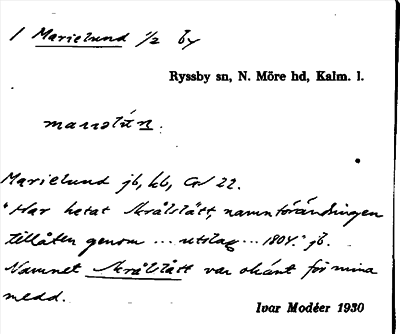 1 Marielund 1/2 by
Ryssby sn, N. Möre hd, Kalm. l.
Marielund jb, kb, GS 22.
"Har hetat Skrålslätt, namnförändringen
tillåten genom ... utslag ... 1804." jb.
Namnet Skrålslätt var okänt för mina
medd.
Ivar Modéer 1930